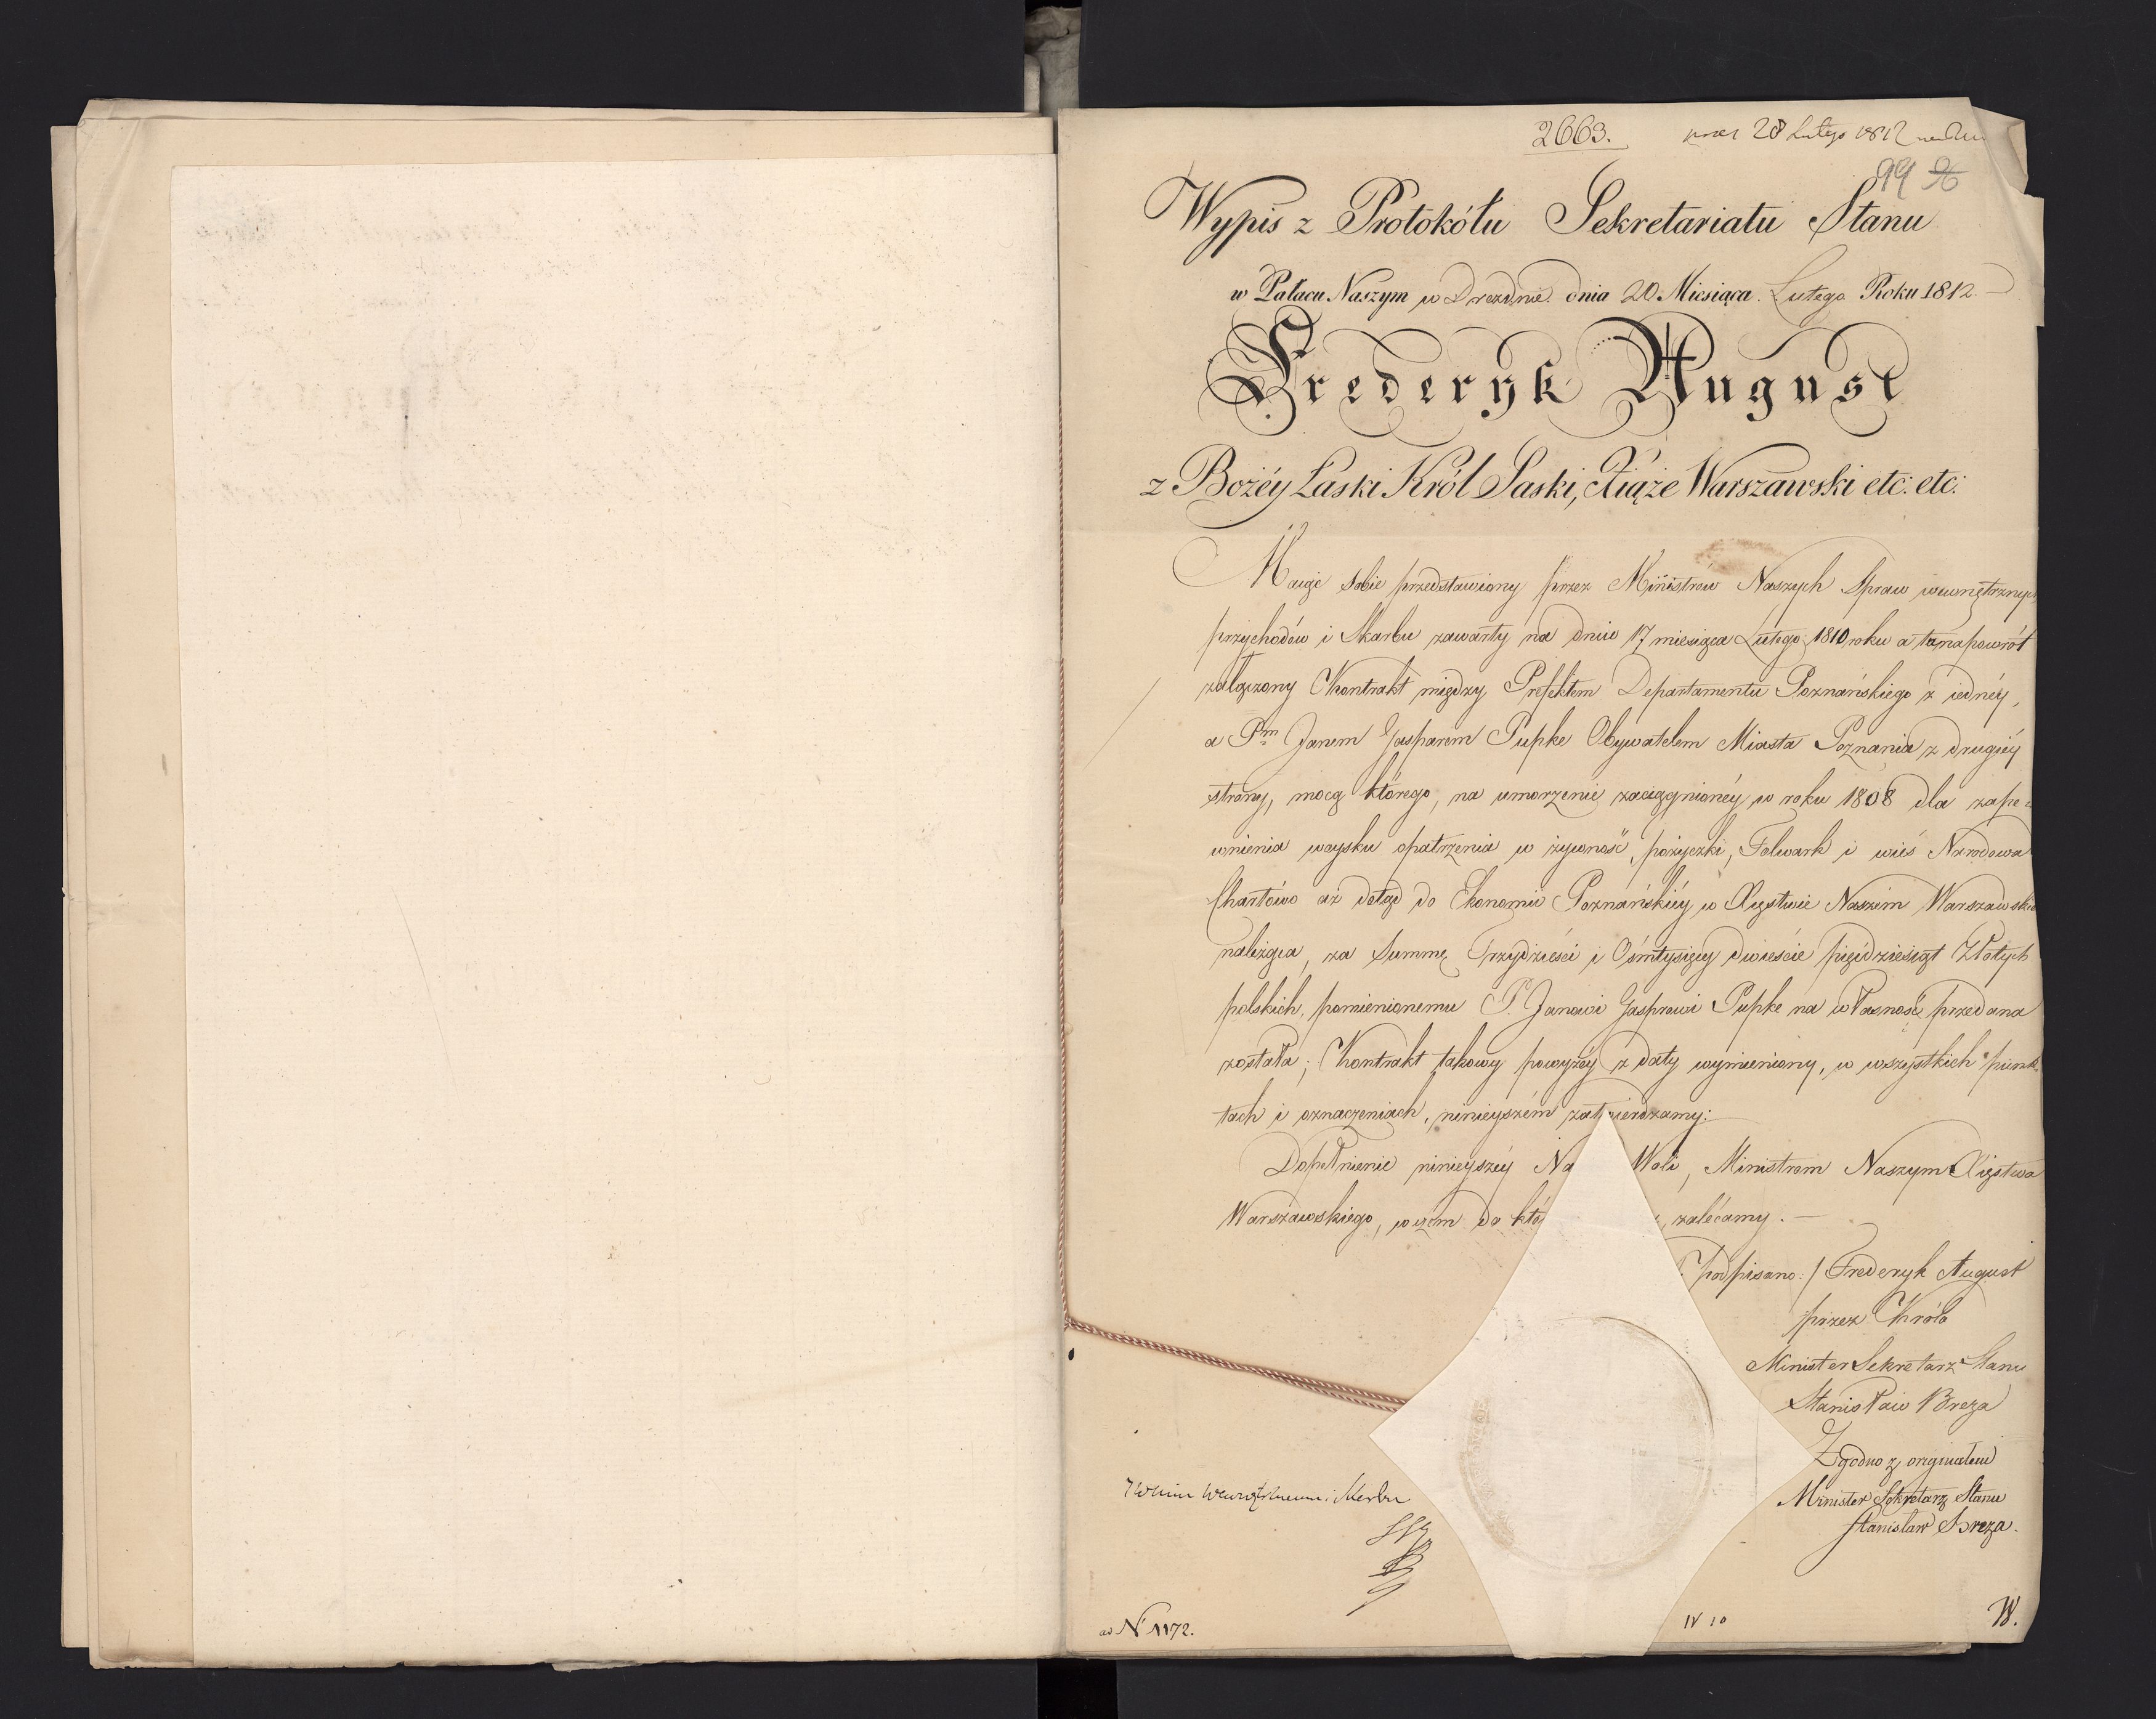 2663.
28 Lutego 1812
99
Wypis z Protokółu Sekretariatu Stanu
w Pałacu Naszym w Dreznie dnia 20 Miesiąca Lutego Roku 1812.
Frederyk August
z Bożéy Łaski Król Saski, Xiąże Warszawski etc: etc:
Maiąc sobie przedstawiony przez Ministrów Naszych Spraw wewnętrznych
przychodów i Skarbu zawarty na dniu 17 miesiąca Lutego 1810 roku a tu napowrót
załączony Kontrakt między Prefektem Departamentu Poznańskiego z iednéy,
a Pm Janem Gasparem Pupke Obywatelem Miasta Poznania z drugiéy
strony, mocą którego, na umorzenie zaciągnionéy w roku 1808 dla zape=
wnienia woysku opatrzenia w żywność, pożyczki, Folwark i wieś Narodowa
Chartowo aż dotąd do Ekonomii Poznańskiéy w Xięstwie Naszém Warszawskie
należąca, za Summę Trzydzieści i Ośmtysięcy dwieście pięćdziesiąt Złotych
polskich, pomienionemu P. Janowi Gasprowi Pupke na własność przedana
została; Kontrakt takowy powyżéy z daty wymieniony, w wszystkich punk=
tach i oznaczeniach, ninieyszém zatwierdzamy:
Dopełnienie ninieyszéy Na Woli, Ministrom Naszym Xięstwa
Warszawskiego, w czém do któ zalécamy. —
podpisano:/ Frederyk August
przez Króla
Minister Sekretarz Stanu
Stanisław Breza
Zgodno z originałem
Minister Sekretarz Stanu
Stanisław Breza.
ad N 1172.
IV 10
W.